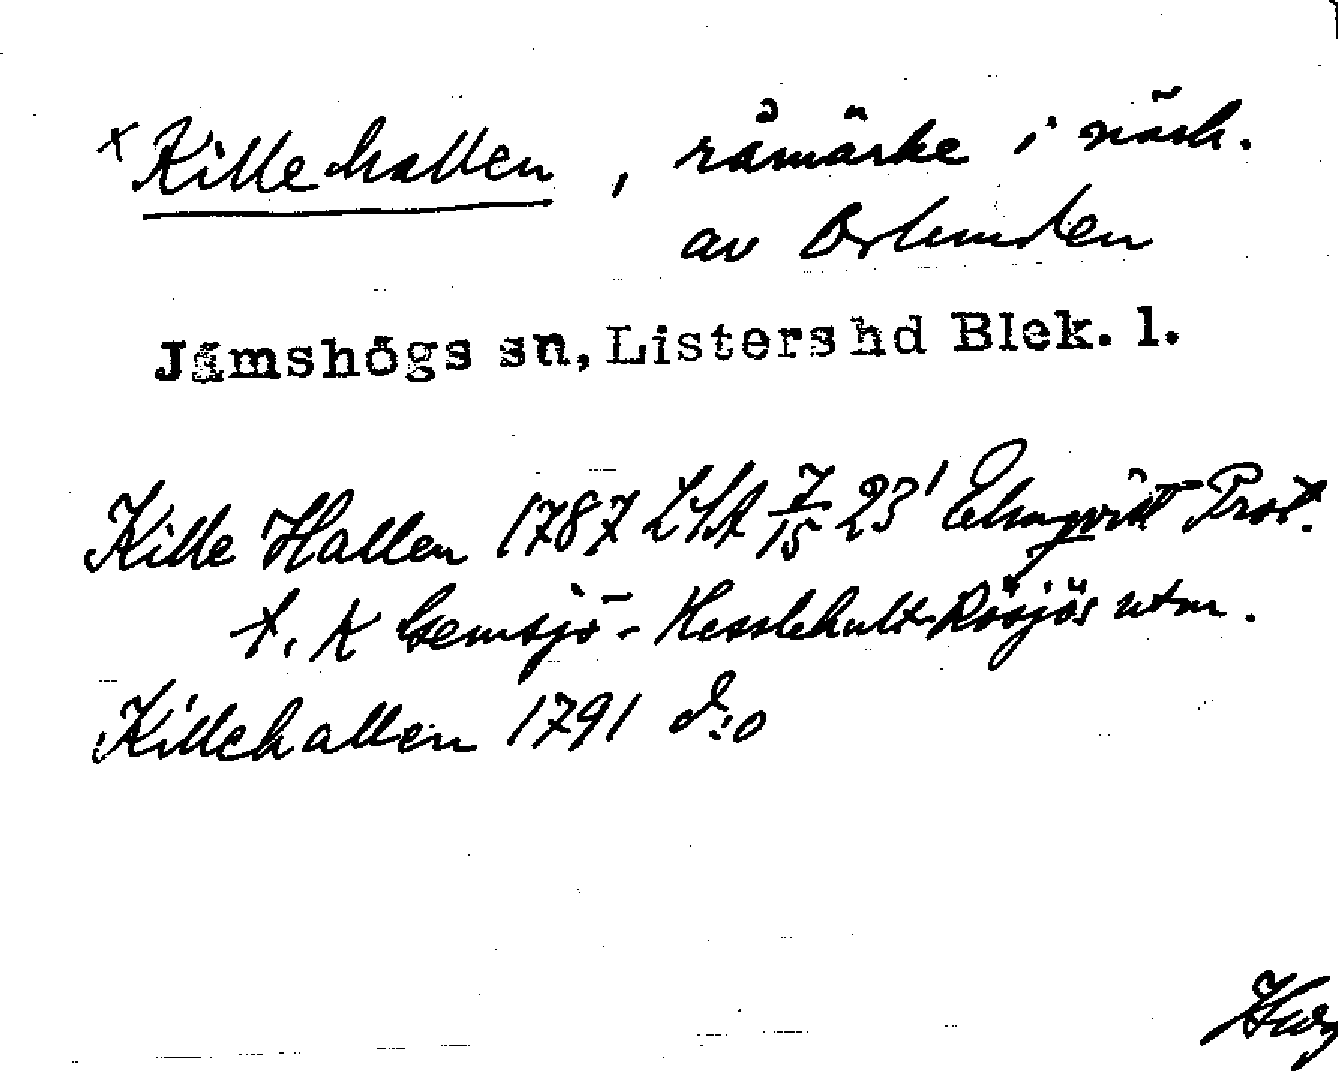 x Killehallen, råmärke i närh.
av Orlunden
Jämshögs sn, Listers hd Blek. l.
Kille Hallen 1787 LSA 7/15 23' Elmqvitt Prot.
t. K Gemsjö - Hesslehult - Rösjös utm.
Killehallen 1791 d:o